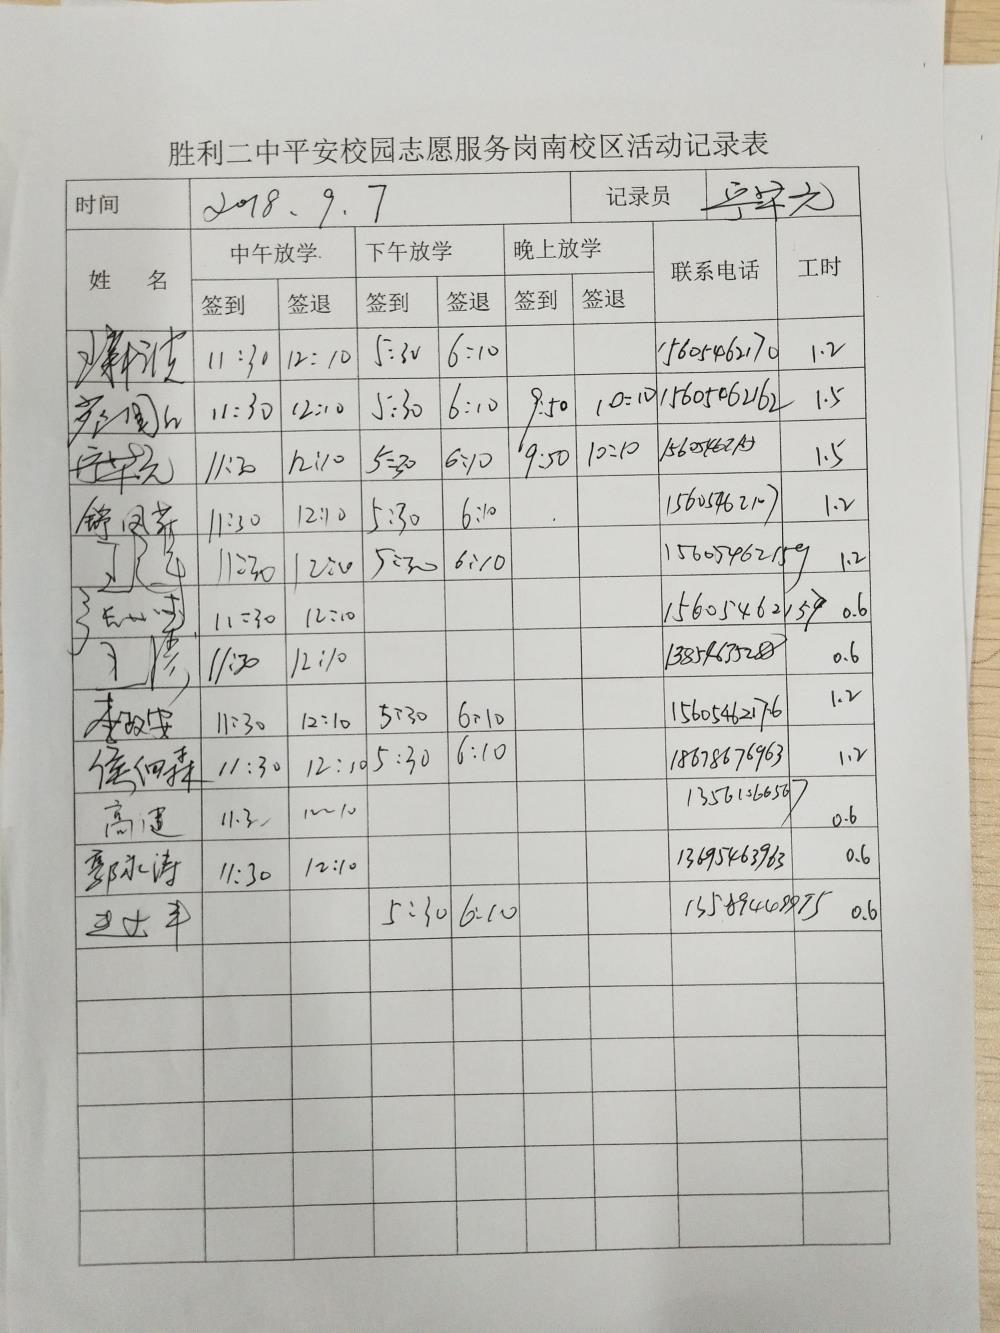 胜利二中平安校园志愿服务岗南校区活动记录表
时间 2018.9.7 记录员
姓 名 中午放学 下午放学 晚上放学 联系电话 工时
签到 签退 签到 签退 签到 签退
11:30 12:10 5:30 6:10 15605462170 1.2
11:30 12:10 5:30 6:10 9:50 10:10 15605462162 1.5
11:30 12:10 5:30 6:10 9:50 10:10 1.5
11:30 12:10 5:30 6:10 15605462107 1.2
11:30 12:10 5:30 6:10 15605462159 1.2
11:30 12:10 15605462159 0.6
11:30 12:10 0.6
李政安 11:30 12:10 5:30 6:10 15605462176 1.2
侯向森 11:30 12:10 5:30 6:10 18678676963 1.2
高建 0.6
郭永涛 11:30 12:10 13695463963 0.6
5:30 6:10 0.6